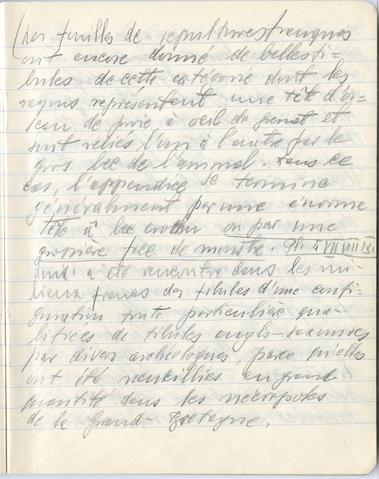 (Les fouilles de sépultures franques
ont encore donné de belles fi-
bules de cette catégorie dont les
rayons représentent une tête d'oi-
seau de proie à oeil de grenat et
sont reliés l'un à l'autre par le
gros bec de l'animal. Dans ce
cas, l'appendice se termine
généralement par une énorme
tête à bec crochu ou par une
grossière face de monstre. Pl.
a été rencontré dans les mi-
lieux francs des fibules d'une confi-
guration toute particulière qua-
lifiées de fibules anglo-saxonnes
par divers archéologues, parce qu'elles
ont été recueillies en grand
quantité dans les nécropoles
de la Grande-Bretagne.